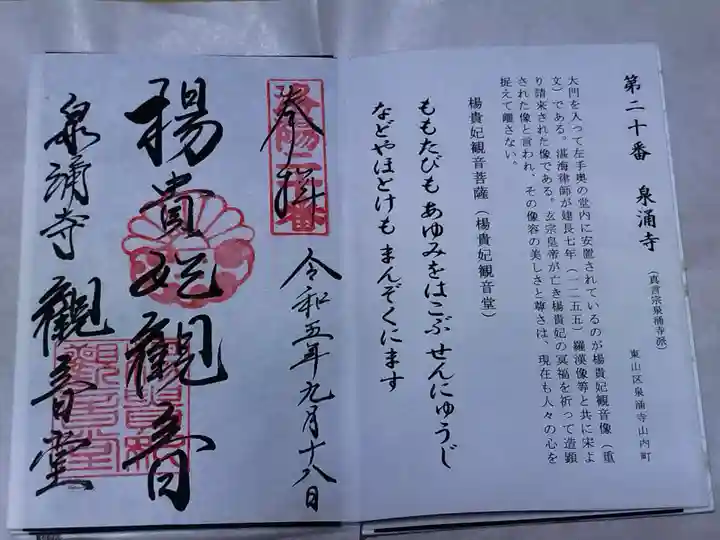 第二十番 泉涌寺
(真言宗泉涌寺派)
東山区泉涌寺山内町
大門を入って左手奥の堂内に安置されているのが楊貴妃観音像(重
文)である。湛海律師が建長七年(一二五五)羅漢像等と共に宋よ
り請来された像である。玄宗皇帝が亡き楊貴妃の冥福を祈って造顕
された像と言われ、その像容の美しさと尊さは、現在も人々の心を
捉えて離さない。
楊貴妃観音菩薩(楊貴妃観音堂)
ももたびも あゆみをはこぶ せんにゅうじ
などやほどけも まんぞくにます
奉拝
令和五年九月十八日
楊貴妃觀音
泉涌寺 觀音堂